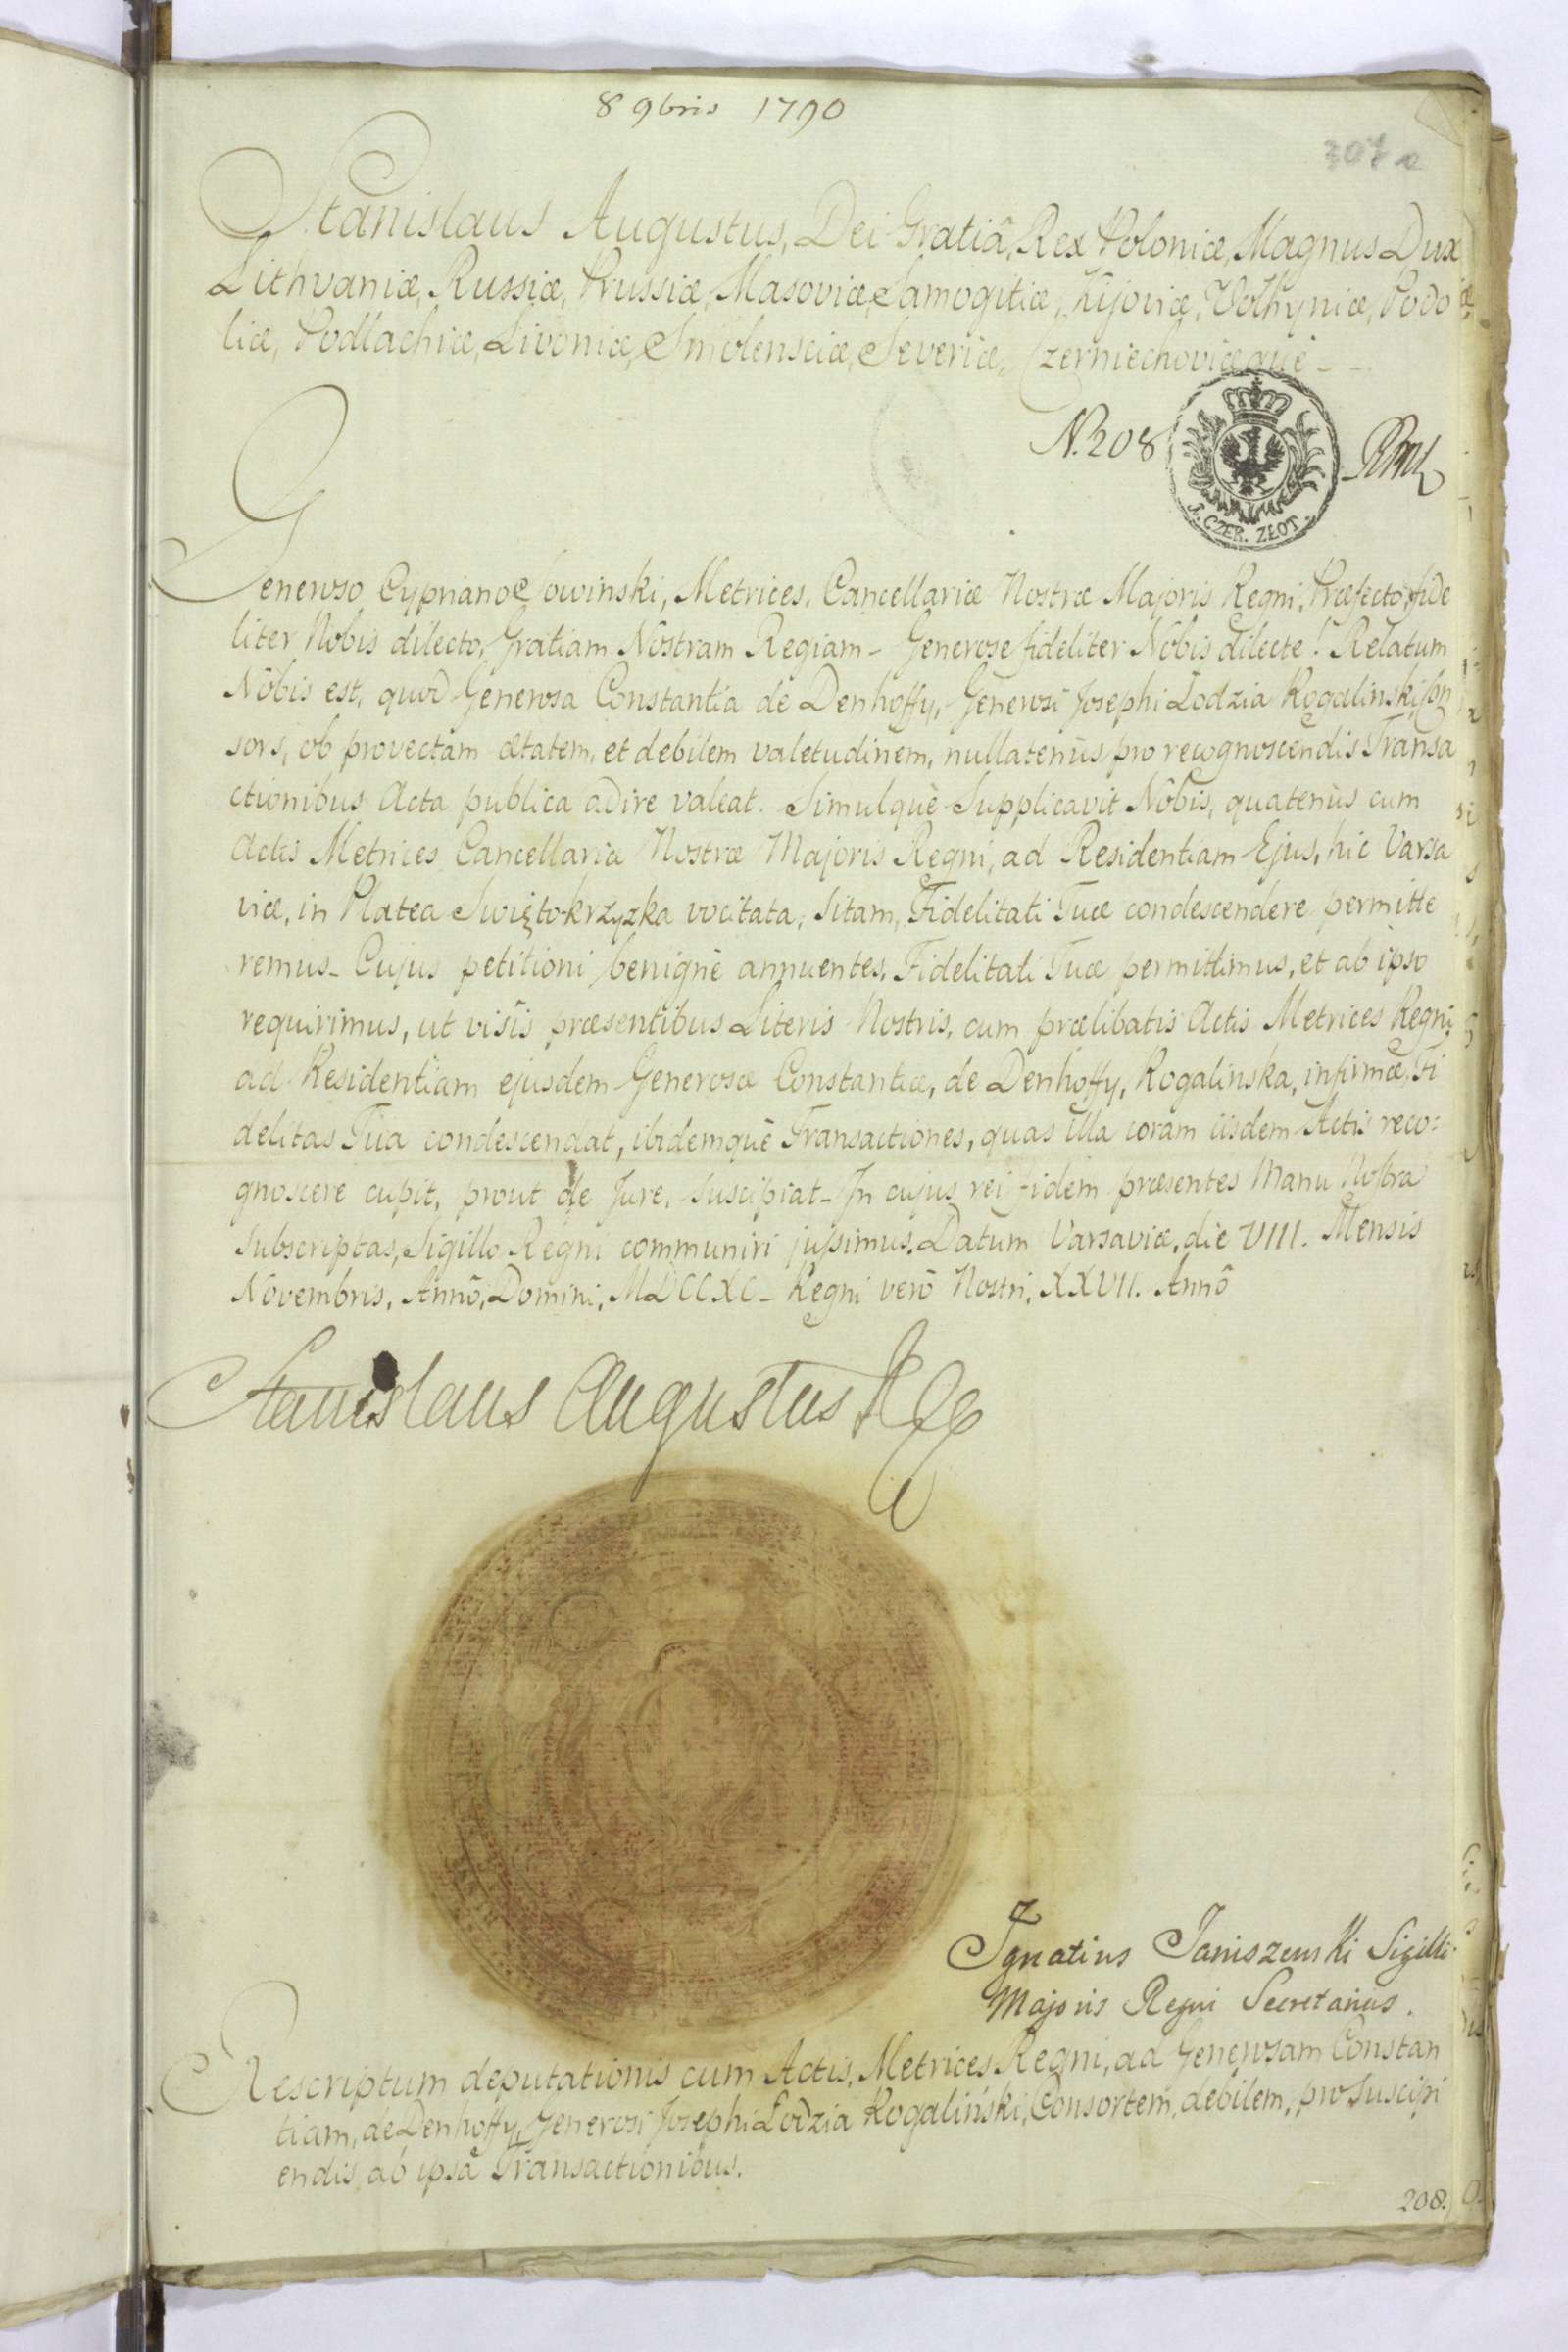 8 9bris 1790
Stanislaus Augustus, Dei Gratiâ, Rex Poloniæ, Magnus Dux
Lithvaniæ, Russiæ, Prussiæ, Masoviæ, Samogitiæ, Kijoviæ, Volhyniæ, Podo
liæ, Podlachiæ, Livoniæ, Smolensciæ, Severiæ, Czerniechoviæquè
N. 208
1. CZER. ZŁOT.
Generoso Cypriano Sowinski, Metrices, Cancellariæ Nostræ Majoris Regni, Præfecto, fide
liter Nobis dilecto, Gratiam Nostram Regiam - Generose fideliter Nobis dilecte! Relatum
Nobis est, quod Generosa Constantia de Denhoffy, Generosi Josephi Lodzia Rogalinski Con
sors, ob provectam ætatem, et debilem valetudinem, nullatenùs pro recognoscendis Transa
ctionibus Acta publica adire valeat. Simulquè Supplicavit Nobis, quatenùs cum
Actis Metrices Cancellariæ Nostræ Majoris Regni, ad Residentiam Ejus, hic Varsa
viæ, in Platea Swięto-krzyzka vocitata, Sitam, Fidelitati Tuæ condescendere permitte
remus - Cujus petitioni benignè annuentes, Fidelitati Tuæ permittimus, et ab ipso
requirimus, ut visis præsentibus Literis Nostris, cum prælibatis Actis Metrices Regni,
ad Residentiam ejusdem Generosæ Constantiæ, de Denhoffy, Rogalinska, infirmæ, Fi
delitas Tua condescendat, ibidemquè Transactiones, quas illa coram iisdem Actis reco:
gnoscere cupit, prout de Jure, suscipiat - In cujus rei fidem præsentes Manu Nostra
Subscriptas, Sigillo Regni communiri jussimus. Datum Varsaviæ, die VIII. Mensis
Novembris, Annô, Domini, MDCCXC - Regni verò Nostri, XXVII. Annô
Stanislaus Augustus Rex
Ignatius Janiszewski Sigilli
Majoris Regni Secretarius.
Rescriptum deputationis cum Actis, Metrices Regni, ad Generosam Constan
tiam, de Denhoffy, Generosi Josephi Łodzia Rogaliński, Consortem, debilem, pro suscipi
endis, ab ipsâ Transactionibus.
208.